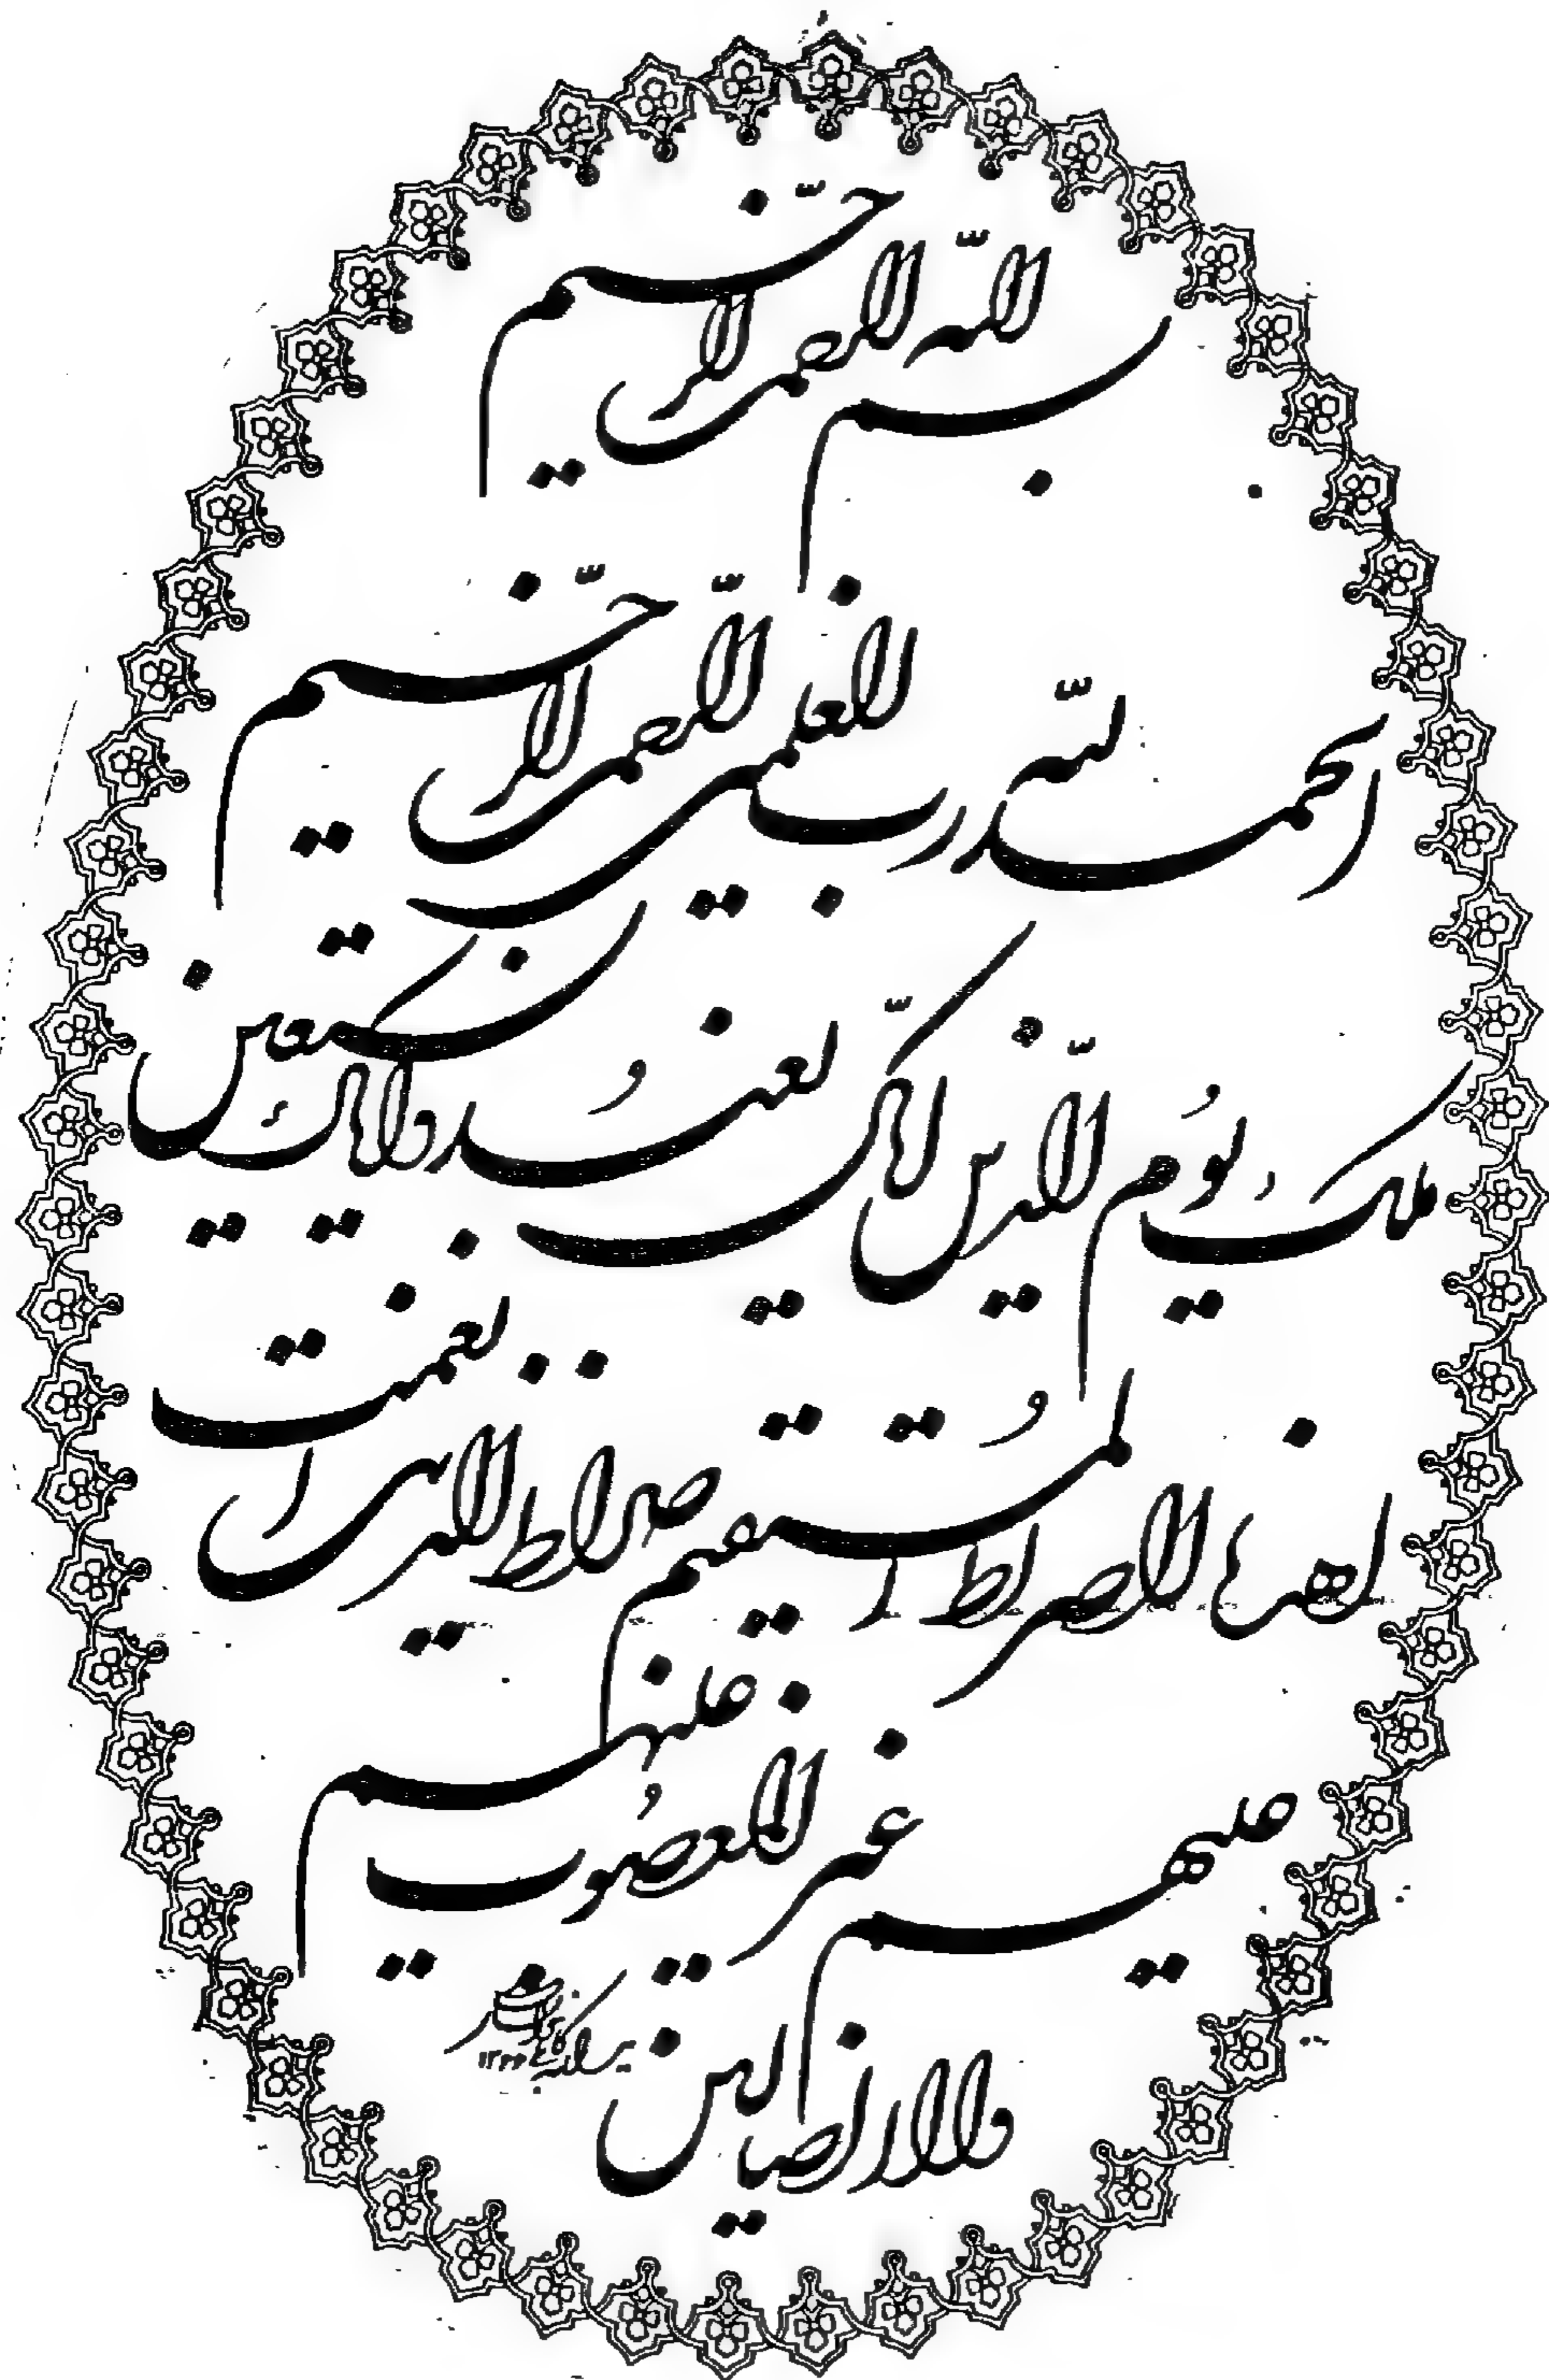 بسم اللّه الرّحمن الرّحيم
الحمد للّه رب العلمين الرّحمن الرّحيم
ملك يوم الدّين اياك نعبد و اياك نستعين
اهدنا الصراط المستقيم صراط الذين انعمت
عليهم غير المغضوب عليهم
ولا الضالين